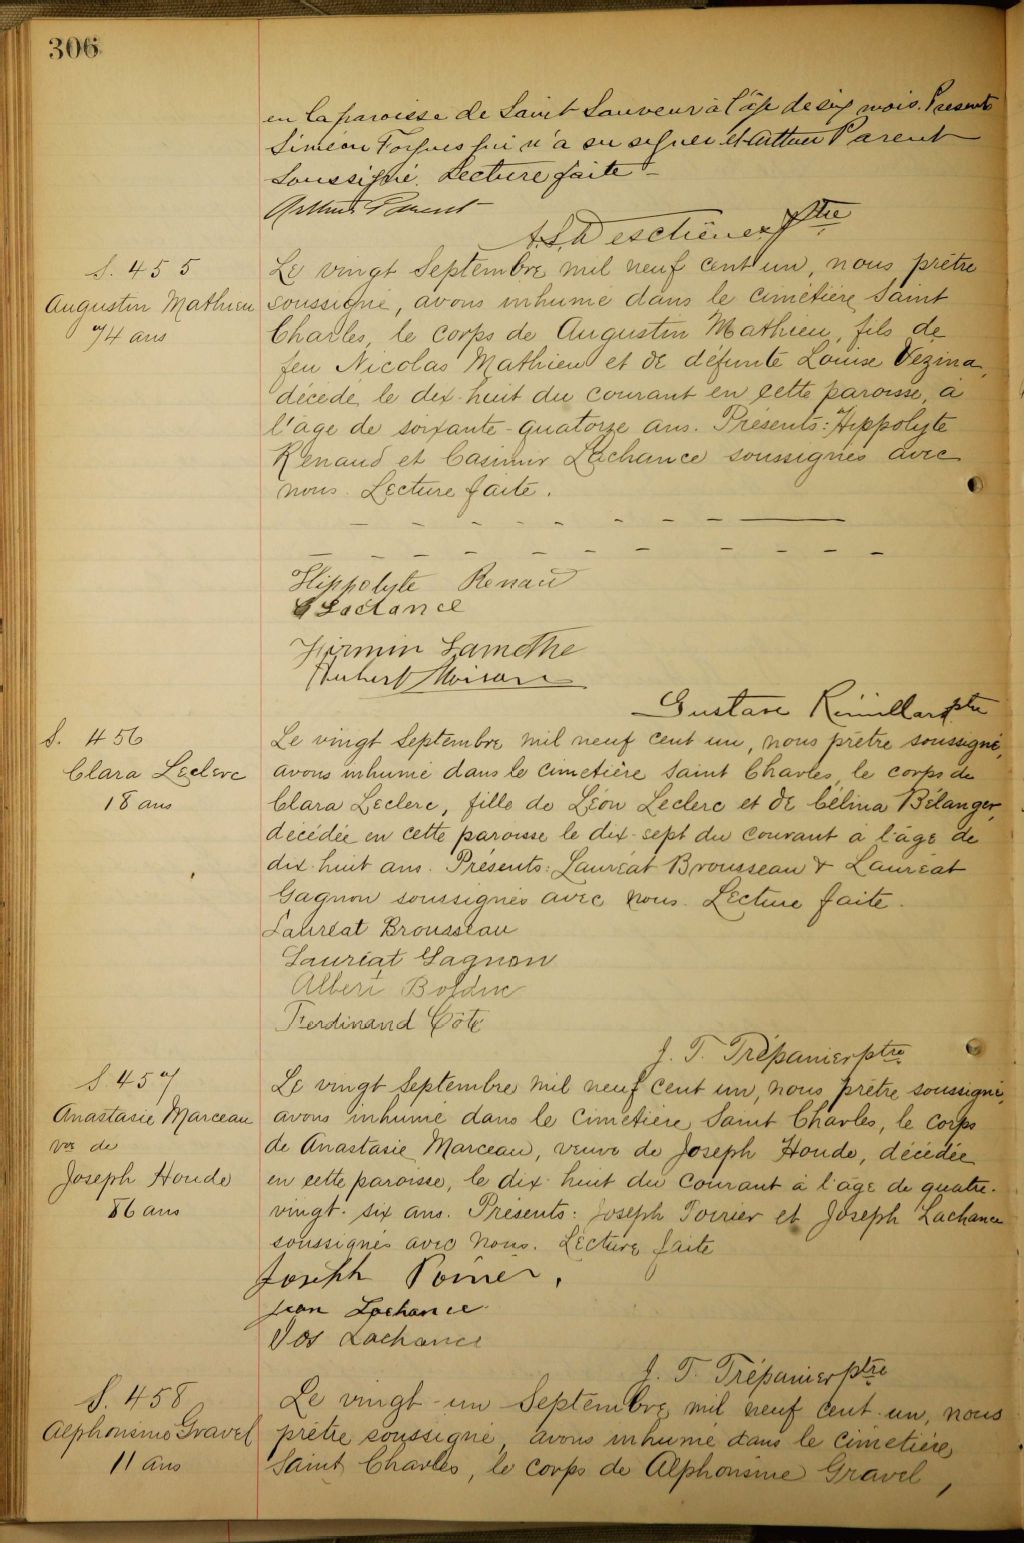 306
en la paroisse de Saint Sauveur à l'âge de six mois. Présents
Siméon Forgues qui n'a su signer et Arthur Parent
soussigné. Lecture faite -
Arthur Parent
A.S. Deschênes ptre
S. 455
Augustin Mathieu
74 ans
Le vingt Septembre mil neuf cent un, nous prêtre
soussigné, avons inhumé dans le cimétière Saint
Charles, le corps de Augustin Mathieu, fils de
feu Nicolas Mathieu et de défunte Louise Vézina,
décédé le dix-huit du courant en cette paroisse, à
l'âge de soixante-quatorze ans. Présents: Hippolyte
Renaud et Casimir Lachance soussignés avec
nous. Lecture faite.
Hippolyte Renaud
C Lachance
Firmin Lamothe
Hubert Moisan
Gustave Rémillard ptre
S. 456
Clara Leclerc
18 ans
Le vingt Septembre mil neuf cent un, nous prêtre soussigné,
avons inhumé dans le cimetière Saint Charles, le corps de
Clara Leclerc, fille de Léon Leclerc et de Célina Bélanger,
décédée en cette paroisse le dix-sept du courant à l'âge de
dix-huit ans. Présents: Lauréat Brousseau & Lauréat
Gagnon soussignés avec nous. Lecture faite.
Lauréat Brousseau
Lauréat Gagnon
Albert Bolduc
Ferdinand Côté
J. T. Trépanier ptre
S. 457
Anastasie Marceau
vve de
Joseph Houde
86 ans
Le vingt Septembre mil neuf cent un, nous prêtre soussigné,
avons inhumé dans le cimetière Saint Charles, le corps
de Anastasie Marceau, veuve de Joseph Houde, décédée
en cette paroisse, le dix-huit du courant à l'âge de quatre-
vingt-six ans. Présents: Joseph Poirier et Joseph Lachance
soussignés avec nous. Lecture faite
Joseph Poirier.
Jean Lachance
Jos Lachance
J. T. Trépanier ptre
S. 458
Alphonsine Gravel
11 ans
Le vingt-un Septembre mil neuf cent-un, nous
prêtre soussigné, avons inhumé dans le cimetière
Saint Charles, le corps de Alphonsine Gravel,